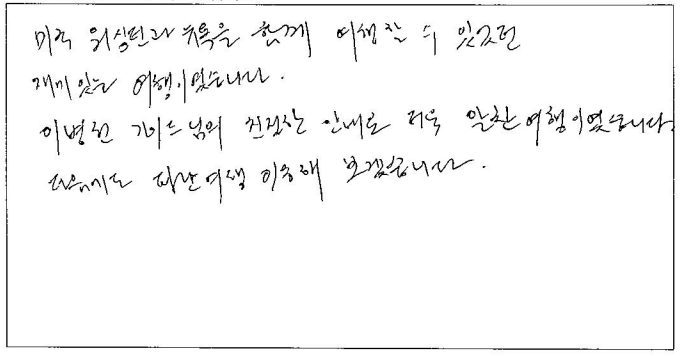 미국 워싱턴과 뉴욕을 함께 여행할 수 있었던
재미있는 여행이었습니다.
이병헌 가이드님의 친절한 안내로 더욱 알찬 여행이였습니다.
다음에도 여행 이용해 보겠습니다.